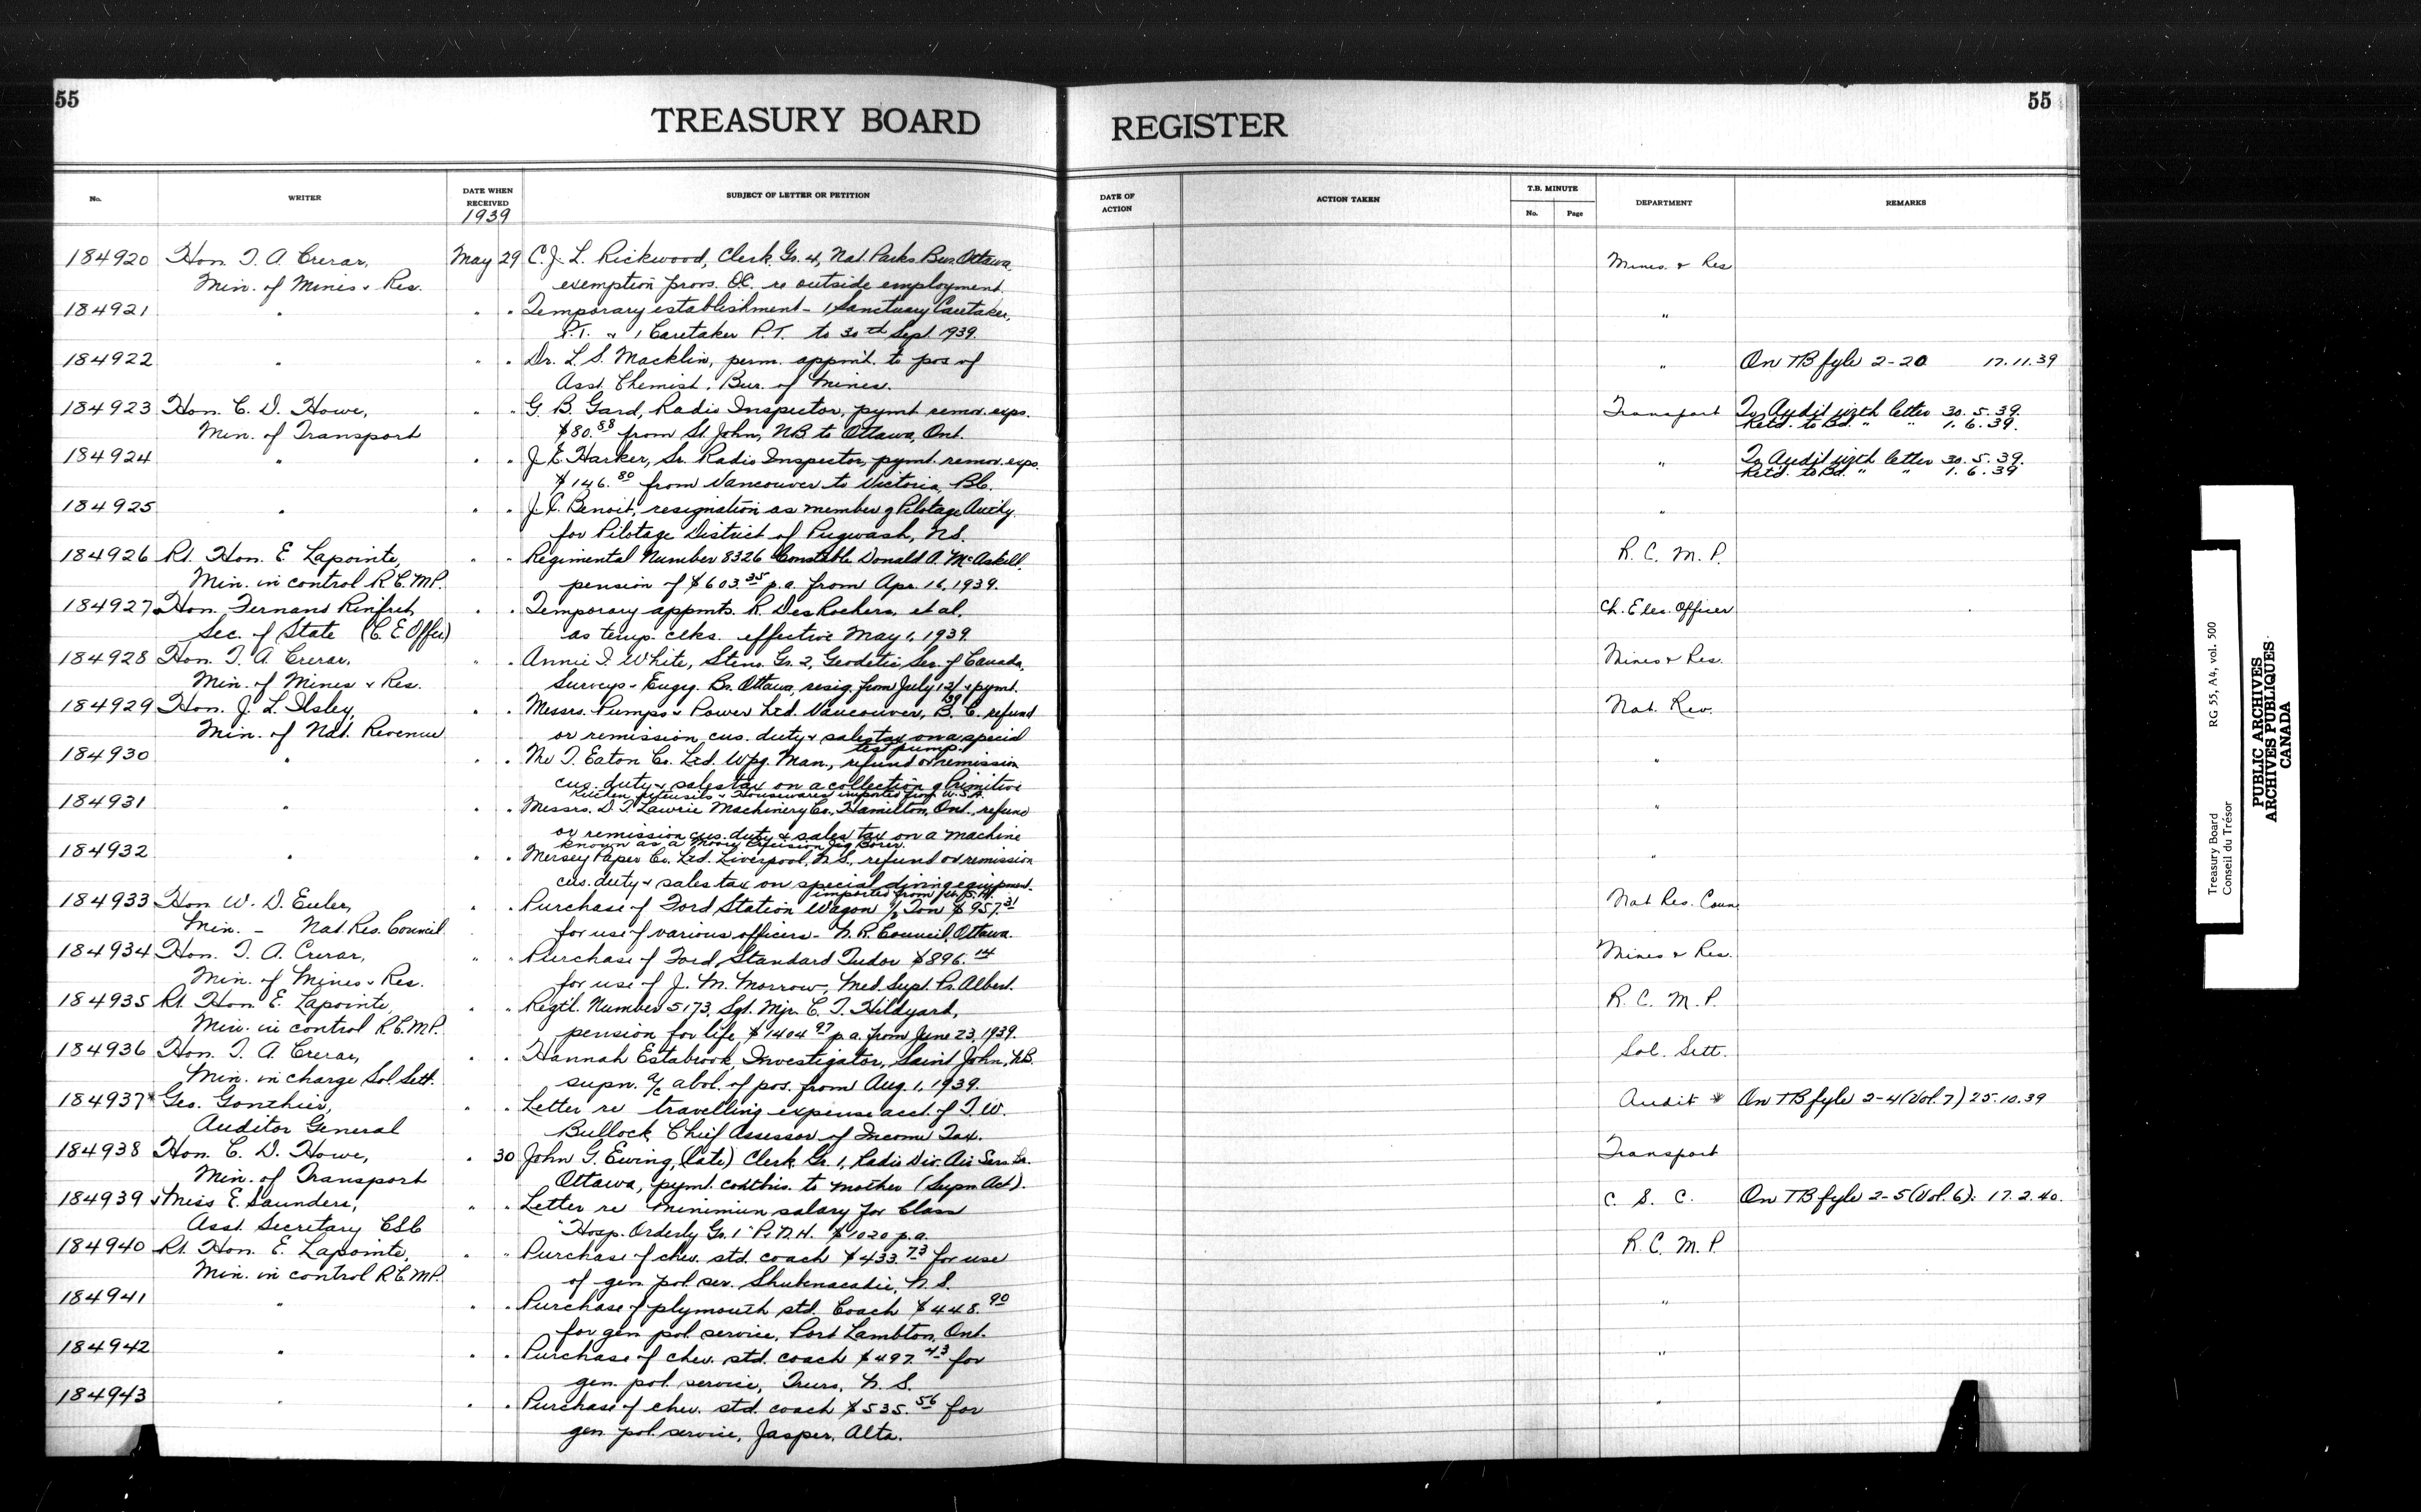 55
TREASURY BOARD REGISTER
55
No.
WRITER
DATE WHEN RECEIVED
1939
SUBJECT OF LETTER OR PETITION
DATE OF ACTION
ACTION TAKEN
T.B. MINUTE
No. Page
DEPARTMENT
REMARKS
184920 Hon. T. A. Crerar, May 29 C. J. L. Rickwood, Clerk Gr. 4, Nat. Parks Bur. Ottawa, Mines & Res
Min. of Mines & Res. exemption provs. O.C. re outside employment.
184921 " " " Temporary establishment - 1 Sanctuary Caretaker, "
P.T. & 1 Caretaker P.T. to 30th Sept. 1939.
184922 " " " Dr. L. S. Macklin, perm. appmt. to pos of " On TB fyle 2-20 17.11.39
Asst. Chemist, Bur. of Mines.
184923 Hon. C. D. Howe, " " G. B. Gard, Radio Inspector, pymt remov. exps. Transport To Audit with letter 30.5.39.
Min. of Transport $80.88 from St. John, NB to Ottawa, Ont. Retd. to Bd. " " 1.6.39.
184924 " " " J. E. Harker, Sr. Radio Inspector, pymt. remov. exps. " To Audit with letter 30.5.39.
$146.80 from Vancouver to Victoria, BC. Retd. to Bd. " " 1.6.39
184925 " " " J. C. Benoit, resignation as member of Pilotage Auth'y. "
for Pilotage District of Pugwash, NS.
184926 Rt. Hon. E. Lapointe, " " Regimental Number 8326 Constable Donald A. McAskill, R. C. M. P.
Min. in control R.C.M.P. pension of $603.35 p.a. from Apr. 16, 1939.
184927 Hon. Fernand Rinfret, " " Temporary appmts. R. DesRochers, et al, Ch. Elec. Officer
Sec. of State (C. E. Offer) as temp. clks. effective May 1, 1939.
184928 Hon. T. A. Crerar, " " Annie I. White, Steno. Gr. 2, Geodetic Ser. of Canada, Mines & Res.
Min. of Mines & Res. Surveys & Engrg. Br. Ottawa, resig. from July 12/39 & pymt.
184929 Hon. J. L. Ilsley, " " Messrs. Pumps & Power Ltd. Vancouver, B. C. refund Nat. Rev.
Min. of Nat. Revenue or remission cus. duty & sales tax on a special
test pump.
184930 " " " The T. Eaton Co. Ltd. Wpg. Man., refund or remission "
cus. duty & sales tax on a collection of Primitive
Kitchen Utensils & Housewares imported from U.S.A.
184931 " " " Messrs. D. T. Lawrie Machinery Co., Hamilton, Ont., refund "
or remission cus. duty & sales tax on a machine
known as a Moore Precision Jig Borer.
184932 " " " Mersey Paper Co. Ltd. Liverpool, N.S., refund or remission "
cus. duty & sales tax on special diving equipment.
imported from U.S.A.
184933 Hon. W. D. Euler, " " Purchase of Ford Station Wagon ½ Ton $957.31 Nat Res. Coun
Min. - Nat. Res. Council for use of various officers - N. R. Council, Ottawa.
184934 Hon. T. A. Crerar, " " Purchase of Ford Standard Tudor $896.14 Mines & Res.
Min. of Mines & Res. for use of J. M. Morrow, Med. Supt. Pr. Albert.
184935 Rt. Hon. E. Lapointe, " " Regt'l. Number 5173, Sgt. Mjr. C. T. Hildyard, R. C. M. P.
Min. in control R.C.M.P. pension for life, $1404.97 p.a. from June 23, 1939.
184936 Hon. T. A. Crerar, " " Hannah Estabrook, Investigator, Saint John, NB. Sol. Sett.
Min. in charge Sol. Sett. supn. a/c abol. of pos. from Aug. 1, 1939.
184937 * Geo. Gonthier, " " Letter re travelling expense acct. of T. W. Audit * On TB fyle 2-4 (Vol. 7) 25.10.39
Auditor General Bullock, Chief Assessor of Income Tax.
184938 Hon. C. D. Howe, " 30 John G. Ewing, (late) Clerk Gr. 1, Radio Div. Air Serv. Br. Transport
Min. of Transport Ottawa, pymt. contbns. to mother (Supn. Act).
184939 Miss E. Saunders, " " Letter re minimum salary for Class C. S. C. On TB fyle 2-5 (Vol. 6). 17.2.40.
Asst. Secretary CSC "Hosp. Orderly Gr. 1" P. N. H. $1020 p.a.
184940 Rt. Hon. E. Lapointe, " " Purchase of chev. std. coach $433.73 for use R. C. M. P.
Min. in control R.C.M.P. of gen. pol. ser. Shubenacadie, N. S.
184941 " " " Purchase of plymouth std. Coach $448.90 "
for gen. pol. service, Port Lambton, Ont.
184942 " " " Purchase of chev. std. coach $497.43 for "
gen. pol. service, Truro, N. S.
184943 " " " Purchase of chev. std. coach $535.56 for "
gen. pol. service, Jasper, Alta.
Treasury Board RG 55, A4, vol. 500
Conseil du Trésor
PUBLIC ARCHIVES
ARCHIVES PUBLIQUES
CANADA